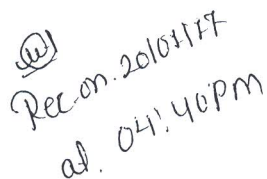 Rec. on. 20/07/17
at. 04:40PM